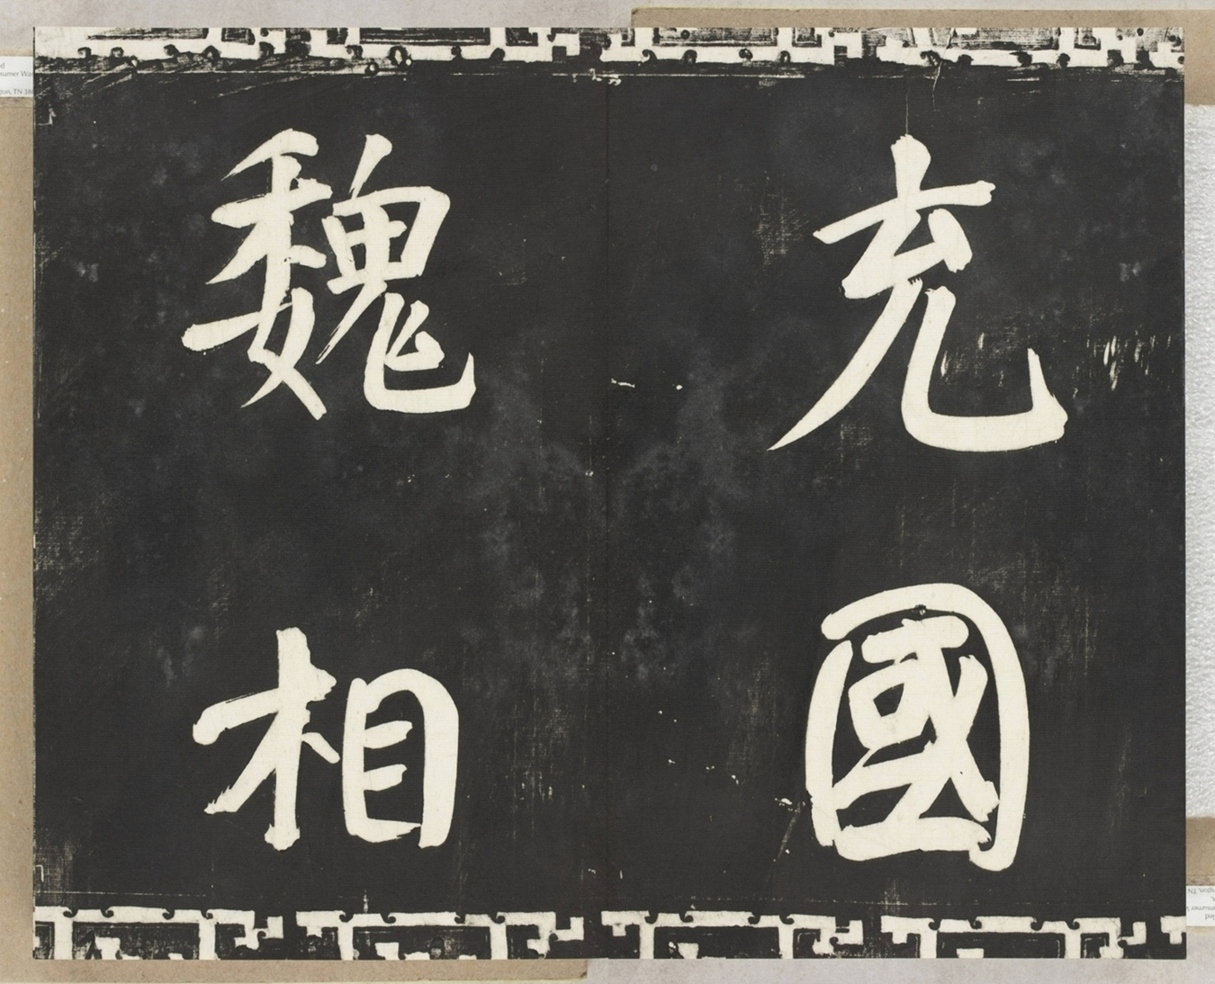 充國
魏相